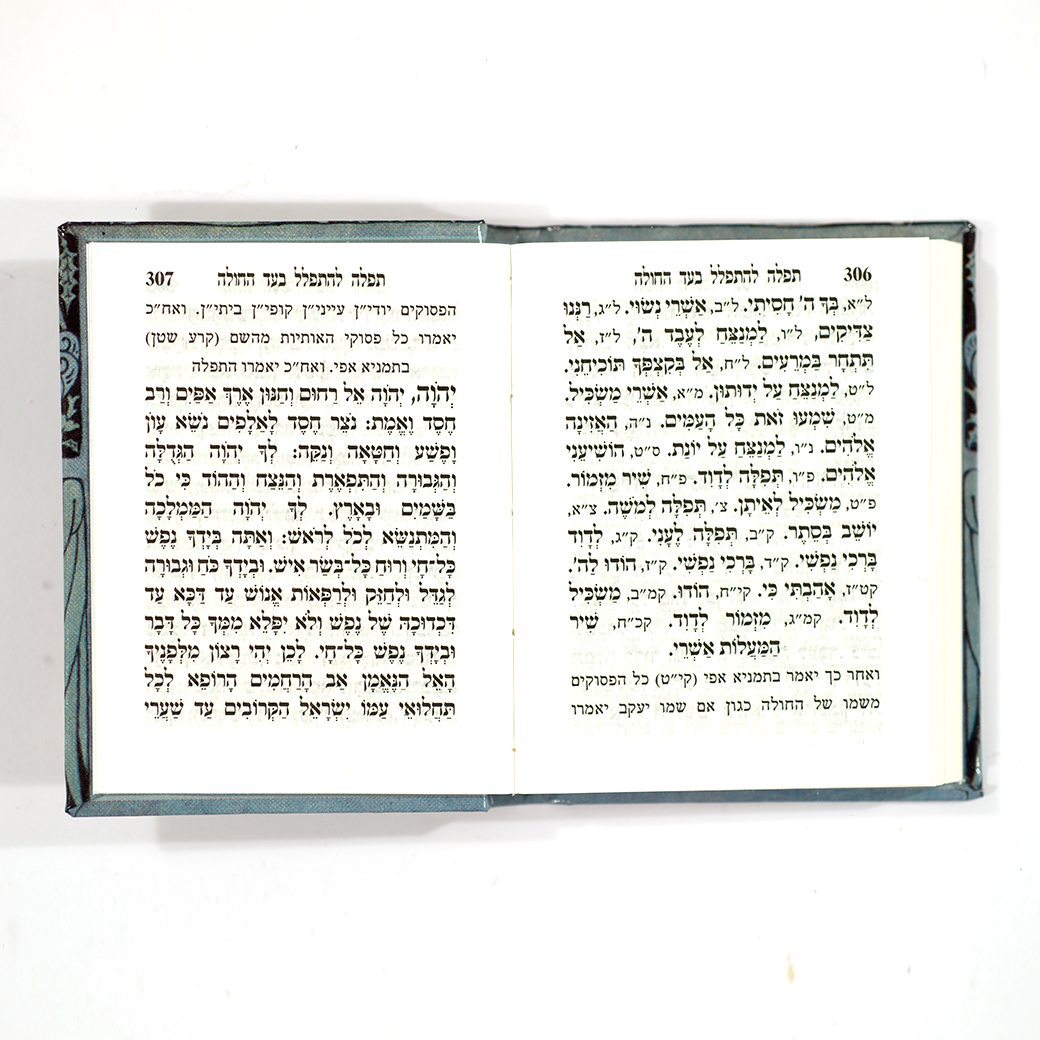 306 תפלה להתפלל בעד החולה
ל״א, בְּךָ ה׳ חָסִיתִי. ל״ב, אַשְׁרֵי נְשׂוּי. ל״ג, רַנְּנוּ
צַדִּיקִים, ל״ו, לַמְנַצֵּחַ לְעֶבֶד ה׳, ל״ז, אַל
תִּתְחַר בַּמְּרֵעִים. ל״ח, אַל בְּקֶצְפְּךָ תּוֹכִיחֵנִי.
ל״ט, לַמְנַצֵּחַ עַל יְדוּתוּן. מ״א, אַשְׁרֵי מַשְׂכִּיל.
מ״ט, שִׁמְעוּ זֹאת כָּל הָעַמִּים. נ״ה, הַאֲזִינָה
אֱלֹהִים. נ״ו, לַמְנַצֵּחַ עַל יוֹנַת. ס״ט, הוֹשִׁיעֵנִי
אֱלֹהִים. פ״ו, תְּפִלָּה לְדָוִד. פ״ח, שִׁיר מִזְמוֹר.
פ״ט, מַשְׂכִּיל לְאֵיתָן. צ׳, תְּפִלָּה לְמֹשֶׁה. צ״א,
יוֹשֵׁב בְּסֵתֶר. ק״ב, תְּפִלָּה לֶעָנִי. ק״ג, לְדָוִד
בָּרְכִי נַפְשִׁי. ק״ד, בָּרְכִי נַפְשִׁי. ק״ז, הוֹדוּ לַה׳.
קט״ז, אָהַבְתִּי כִּי. קי״ח, הוֹדוּ. קמ״ב, מַשְׂכִּיל
לְדָוִד. קמ״ג, מִזְמוֹר לְדָוִד. קכ״ח, שִׁיר
הַמַּעֲלוֹת אַשְׁרֵי.
ואחר כך יאמר בתמניא אפי (קי״ט) כל הפסוקים
משמו של החולה כגון אם שמו יעקב יאמרו
תפלה להתפלל בעד החולה 307
הפסוקים יודי״ן עייני״ן קופי״ן ביתי״ן. ואח״כ
יאמרו כל פסוקי האותיות מהשם (קרע שטן)
בתמניא אפי. ואח״כ יאמרו התפלה
יְהֹוָה, יְהֹוָה אֵל רַחוּם וְחַנּוּן אֶרֶךְ אַפַּיִם וְרַב
חֶסֶד וֶאֱמֶת: נֹצֵר חֶסֶד לָאֲלָפִים נֹשֵׂא עָוֹן
וָפֶשַׁע וְחַטָּאָה וְנַקֵּה: לְךָ יְהֹוָה הַגְּדֻלָּה
וְהַגְּבוּרָה וְהַתִּפְאֶרֶת וְהַנֵּצַח וְהַהוֹד כִּי כֹל
בַּשָּׁמַיִם וּבָאָרֶץ. לְךָ יְהֹוָה הַמַּמְלָכָה
וְהַמִּתְנַשֵּׂא לְכֹל לְרֹאשׁ: וְאַתָּה בְּיָדְךָ נֶפֶשׁ
כָּל־חָי וְרוּחַ כָּל־בְּשַׂר אִישׁ. וּבְיָדְךָ כֹּחַ וּגְבוּרָה
לְגַדֵּל וּלְחַזֵּק וּלְרַפְּאוֹת אֱנוֹשׁ עַד דַּכָּא עַד
דִּכְדוּכָהּ שֶׁל נֶפֶשׁ וְלֹא יִפָּלֵא מִמְּךָ כָּל דָּבָר
וּבְיָדְךָ נֶפֶשׁ כָּל־חָי. לָכֵן יְהִי רָצוֹן מִלְּפָנֶיךָ
הָאֵל הַנֶּאֱמָן אַב הָרַחֲמִים הָרוֹפֵא לְכָל
תַּחֲלוּאֵי עַמּוֹ יִשְׂרָאֵל הַקְּרוֹבִים עַד שַׁעֲרֵי